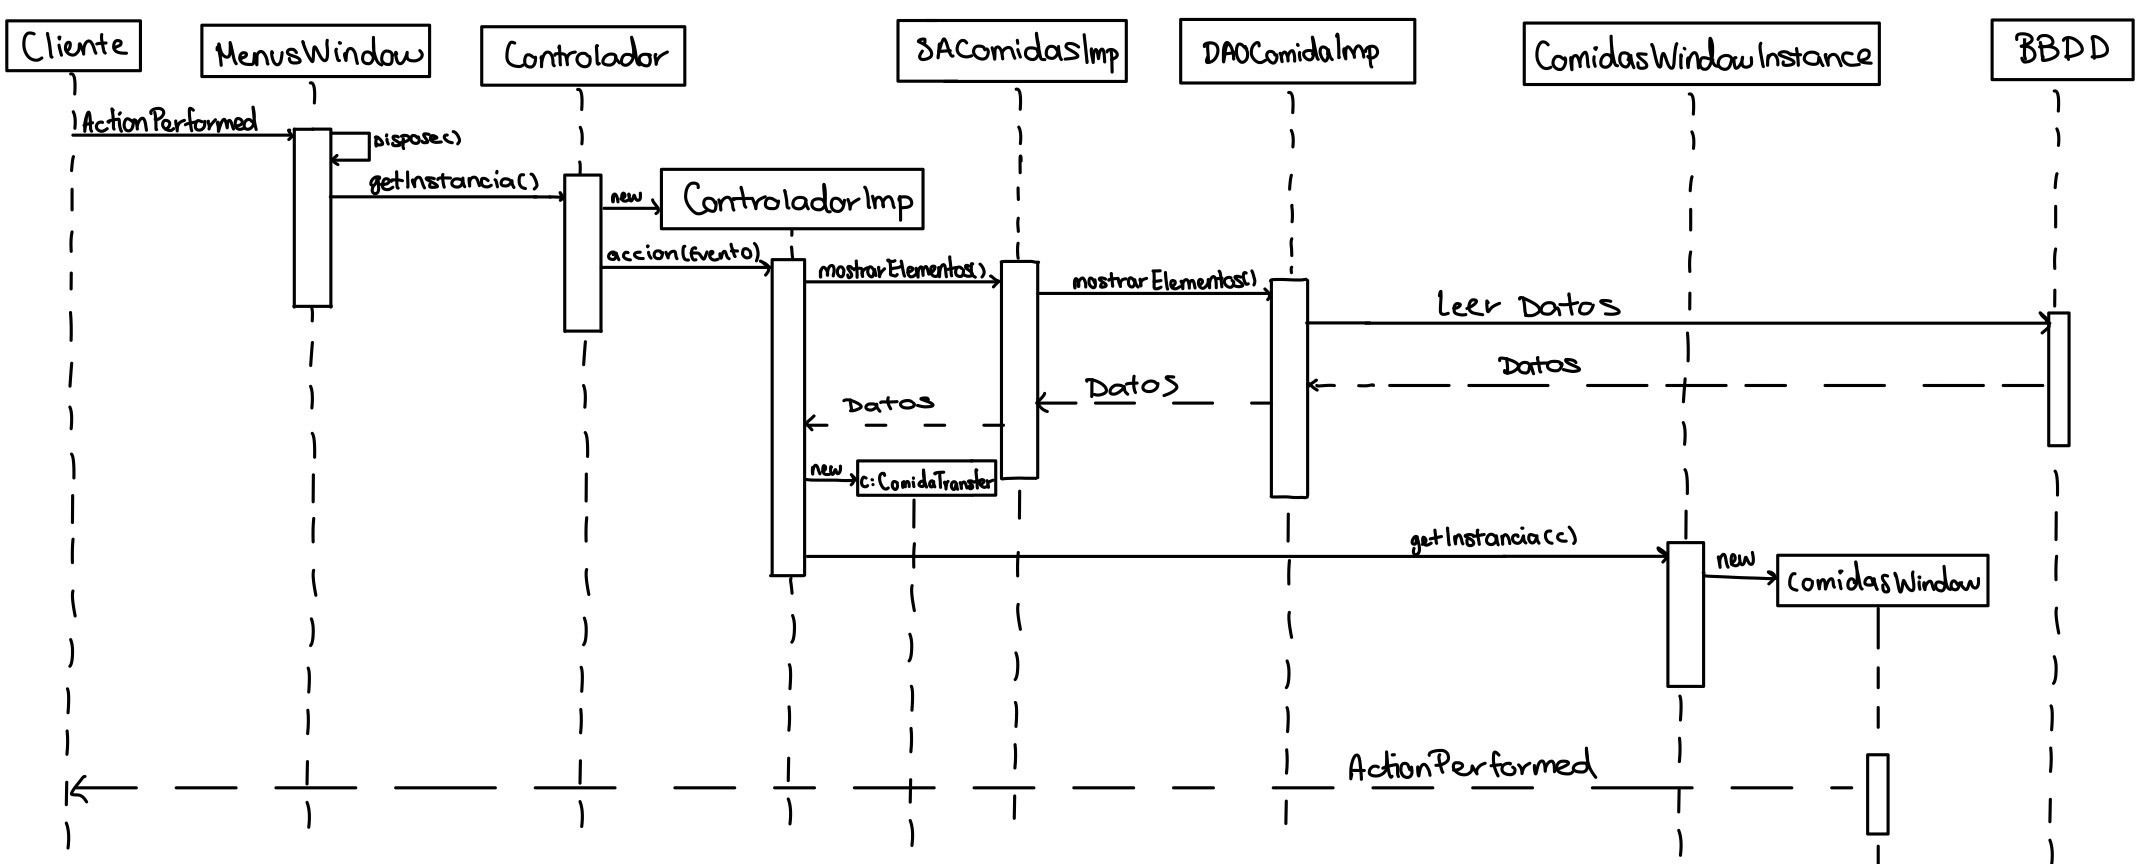 Cliente
MenusWindow
Controlador
SAComidasImp
DAOComidaImp
ComidasWindowInstance
BBDD
ActionPerformed
Dispose()
getInstancia()
new
ControladorImp
accion(Evento)
mostrarElementos()
mostrarElementos()
Leer Datos
Datos
Datos
Datos
new
c:ComidaTransfer
getInstancia(c)
new
ComidasWindow
ActionPerformed